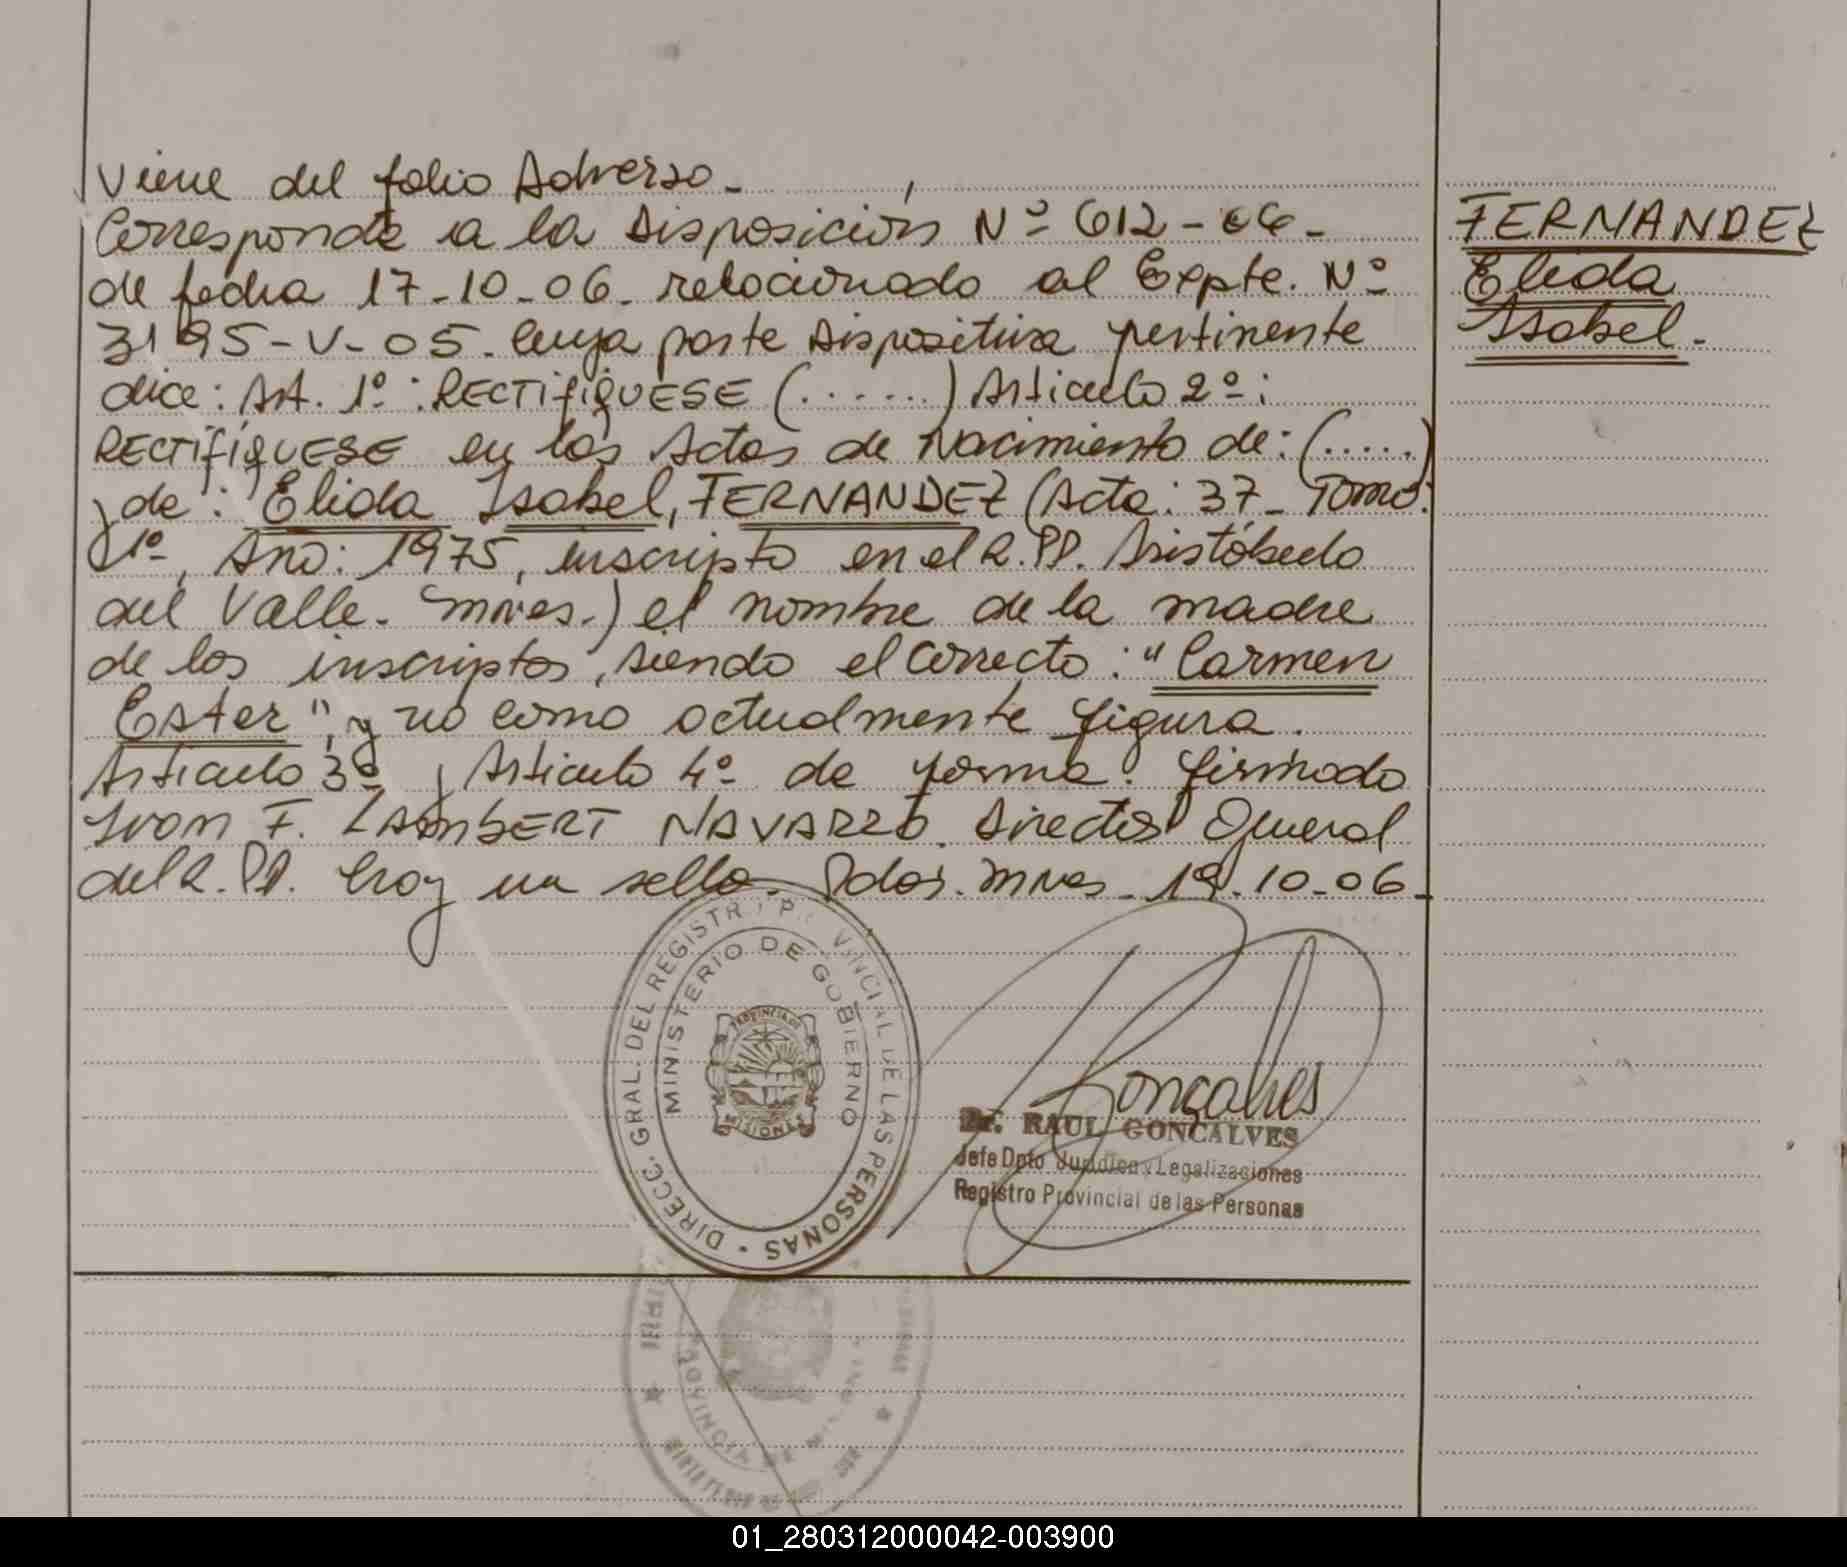 Viene del folio Adverso.-
Corresponde a la Disposición Nº 612-06-
de fecha 17-10-06. relacionado al Expte. Nº
3195-V-05. Cuya parte Dispositiva pertinente
dice: Art. 1º: RECTIFIQUESE (......) Articulo 2º:
RECTIFÍQUESE en las Actas de Nacimiento de: (.....)
y de: Elida Isabel, FERNANDEZ (Acta: 37- Tomo:
1º, Año: 1975, inscripto en el R.PP. Aristóbulo
del Valle- Mnes.) el nombre de la madre
de los inscriptos, siendo el correcto: "Carmen
Ester", y no como actualmente figura.
Articulo 3º y Articulo 4º de forma. firmado
Ivan F. LAMBERT NAVARRO. Director General
del R.PP. hay un sello. Pdas. Mnes- 19-10-06-
FERNANDEZ
Elida
Isabel.-
DIRECC. GRAL. DEL REGISTRO PROVINCIAL DE LAS PERSONAS
MINISTERIO DE GOBIERNO
PROVINCIA DE
MISIONES
Gonçalves
Dr. RAUL GONCALVES
Jefe Dpto Jurídico y Legalizaciones
Registro Provincial de las Personas
PROVINCIA DE
01_280312000042-003900